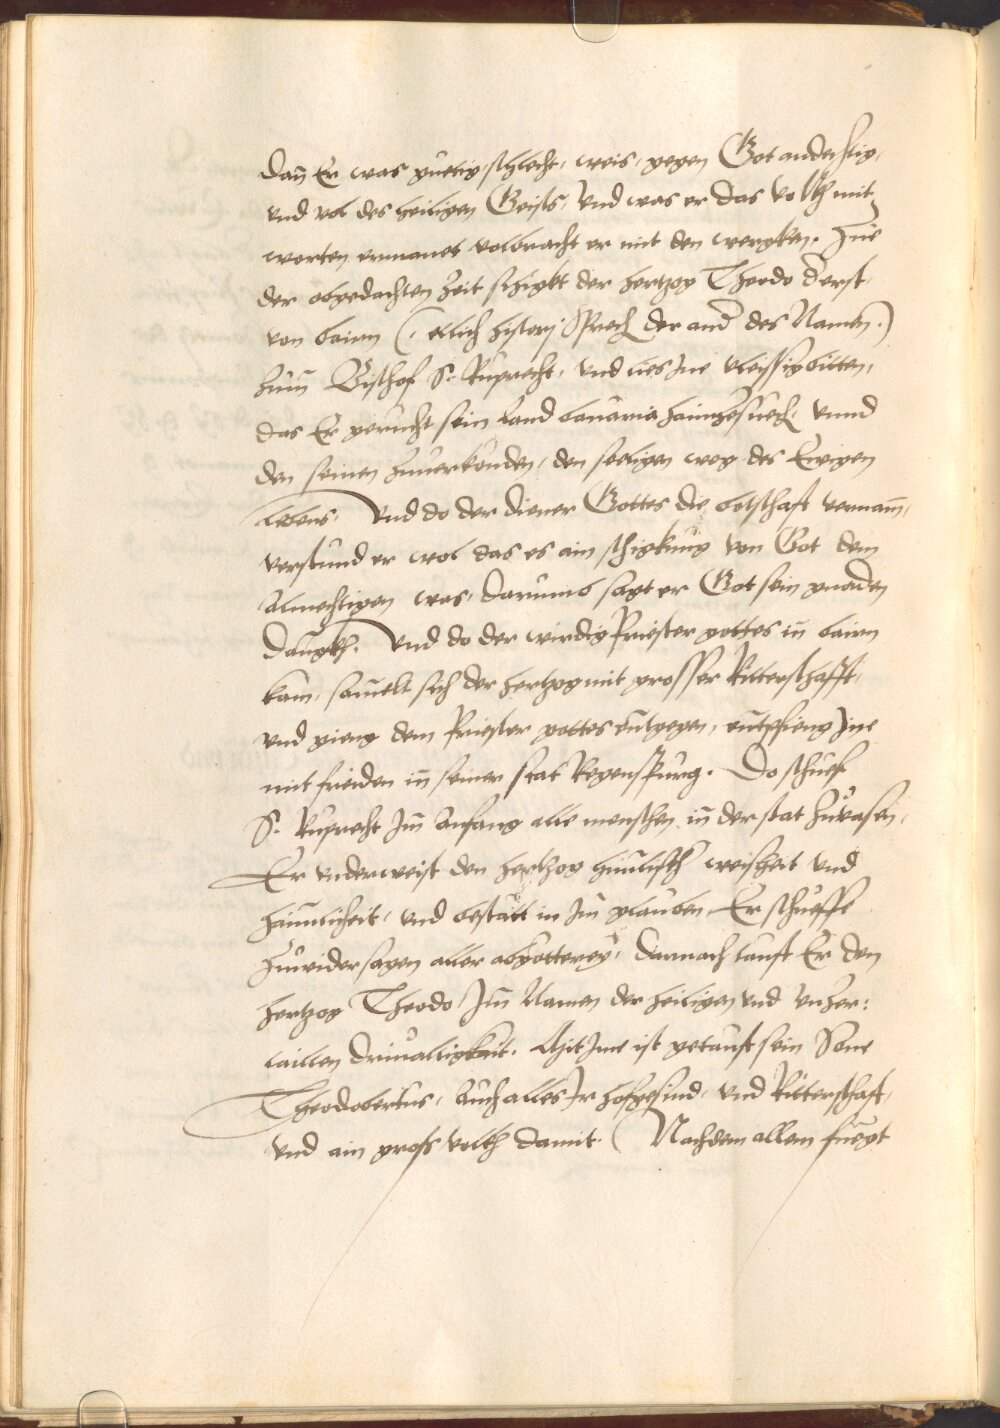 Dañ Er was guetig, schlecht, weis, gegen Got andechtig,
vnd vol des heiligen Geists, Vnd was er das Volkh mit
worten ermanet volbracht er mit den wergken. Zue
der obgedachten Zeit schigkt der hertzog Theodo der erst
von bairn (. etlich historj Sprech der and des Namen .)
Zum Bischof S. Ruprecht, vnd lies Jne vleissig bitten,
das Er gerucht sein land bauaria haimzesuech, vnnd
den seinen Zuuerkunden, den seeligen weg des Ewigen
lebens. Vnd do der diener Gottes die botschaft vernam,
verstund er wol das es ain schigkung von Got dem
Almechtigen was, darumb sagt er Got sein gnaden
Dangkh. Vnd do der wirdig Priester gottes in bairn
kam, samelt sich der hertzog mit grosser Ritterschafft,
vnd gieng dem Priester gottes entgegen, entpfieng Jne
mit freiden in seiner stat Regenspurg. Do schuef
S. Ruprecht Jm Anfang alle menschen in der stat Zuuasten,
Er vnderweist den hertzog himlisch weisheit vnd
haimlicheit, vnd bestätt in Jm glauben, Er schuefft
Zuwidersagen aller abgötterey, Darnach tauft Er den
hertzog Theodo Jm Namen der heiligen vnd vnzer:
taillen driualtigkait. Mit Jme ist getauft sein Sone
Theodobertus, Auch alles Jr hofgesind, vnd Ritterschaft,
vnd ain gross volkh damit. (Nachdem allem fuegt